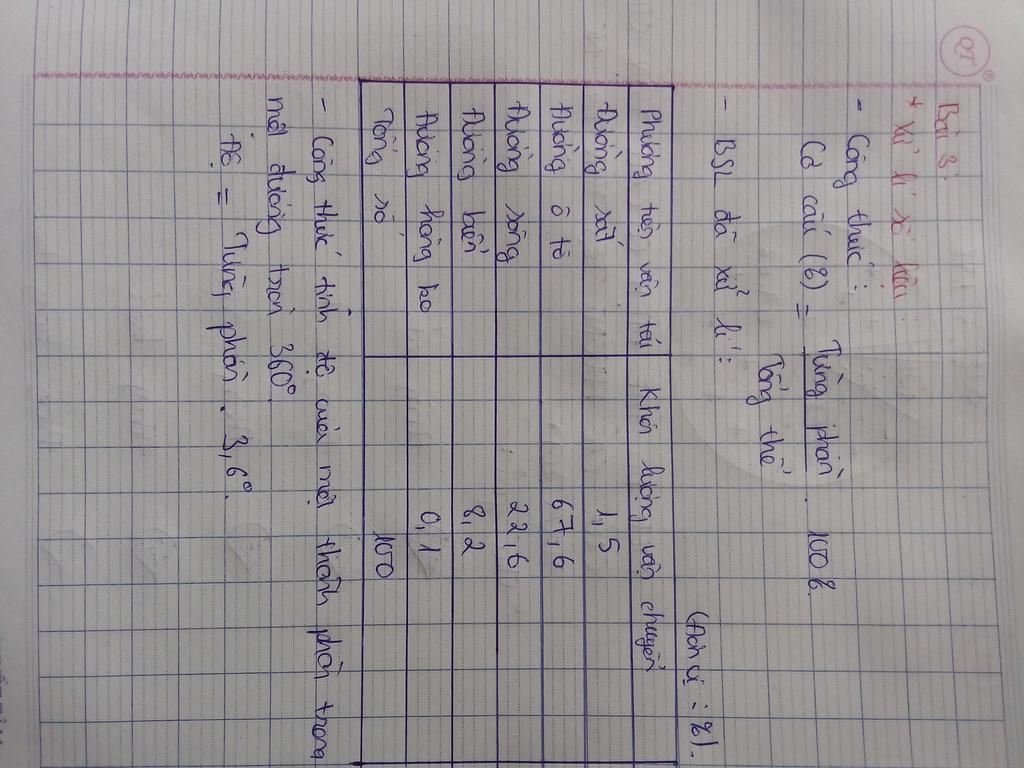 Bài 3:
+ Xử lí số liệu:
- Công thức:
Cơ cấu (%) = Từng phần / Tổng thể . 100%.
- BSL đã xử lí:
(Đơn vị: %).
Phương tiện vận tải Khối lượng vận chuyển
Đường sắt 1,5
Đường ô tô 67,6
Đường sông 22,6
Đường biển 8,2
Đường hàng ko 0,1
Tổng số 100
- Công thức tính độ của mỗi thành phần trong
một đường tròn 360°.
Độ = Từng phần . 3,6°.